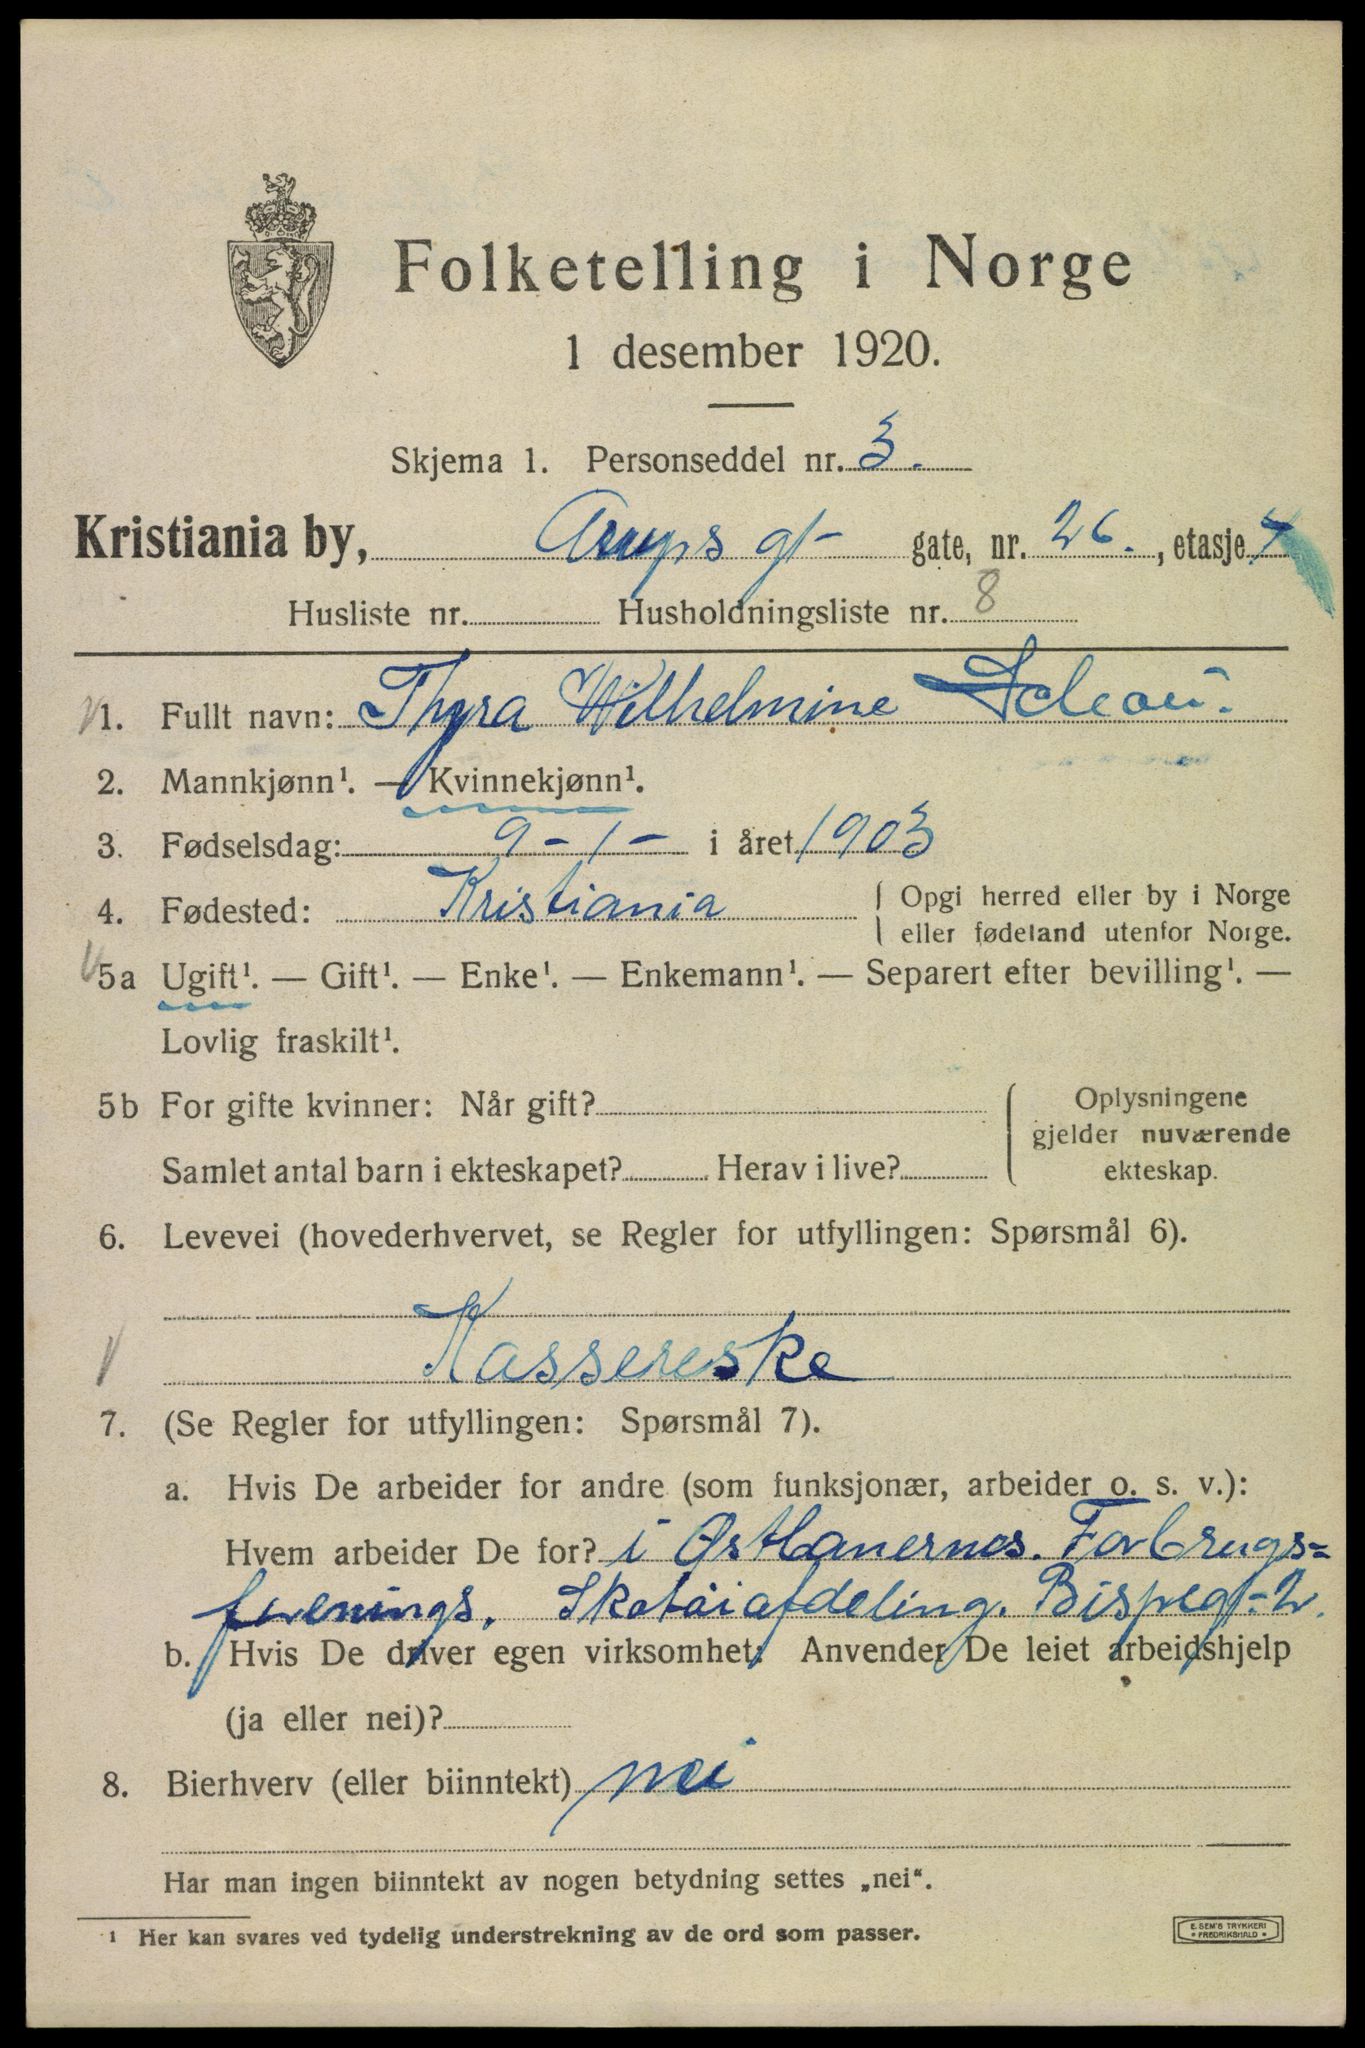 Folketelling i Norge
1 desember 1920.
Skjema 1. Personseddel nr. 3.
Kristiania by, Arups gt- gate, nr. 26., etasje 4
Husliste nr. Husholdningsliste nr. 8
1. Fullt navn: Thyra Wilhelmine
2. Mannkjønn¹. — Kvinnekjønn¹.
3. Fødselsdag: 9-1- i året 1903
4. Fødested: Kristiania { Opgi herred eller by i Norge
eller fødeland utenfor Norge.
5a Ugift¹. — Gift¹. — Enke¹. — Enkemann¹. — Separert efter bevilling¹. —
Lovlig fraskilt¹.
5b For gifte kvinner: Når gift? { Oplysningene
gjelder nuværende
Samlet antal barn i ekteskapet? Herav i live? ekteskap.
6. Levevei (hovederhvervet, se Regler for utfyllingen: Spørsmål 6).
Kassereske
7. (Se Regler for utfyllingen: Spørsmål 7).
a. Hvis De arbeider for andre (som funksjonær, arbeider o. s. v.):
Hvem arbeider De for? i Østbanernes. Forbrugs=
forenings. Skotøiafdeling. Bispegt-2.
b. Hvis De driver egen virksomhet: Anvender De leiet arbeidshjelp
(ja eller nei)?
8. Bierhverv (eller biinntekt) nei
Har man ingen biinntekt av nogen betydning settes „nei“.
¹ Her kan svares ved tydelig understrekning av de ord som passer.
E. SEM'S TRYKKERI
• FREDRIKSHALD •